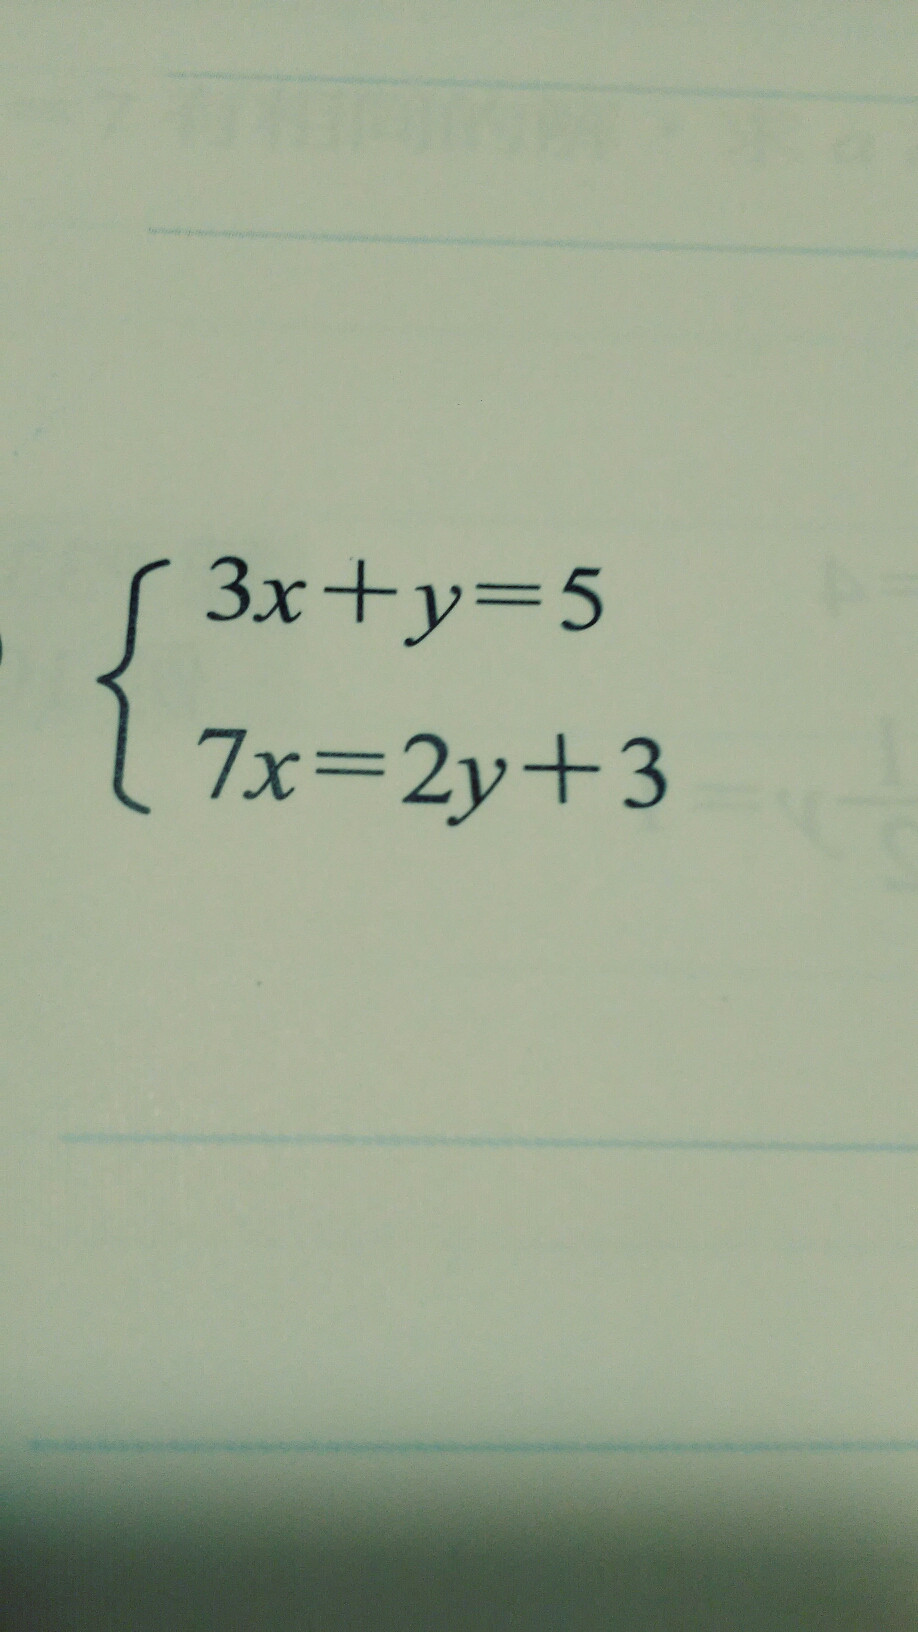 3x+y=5
7x=2y+3